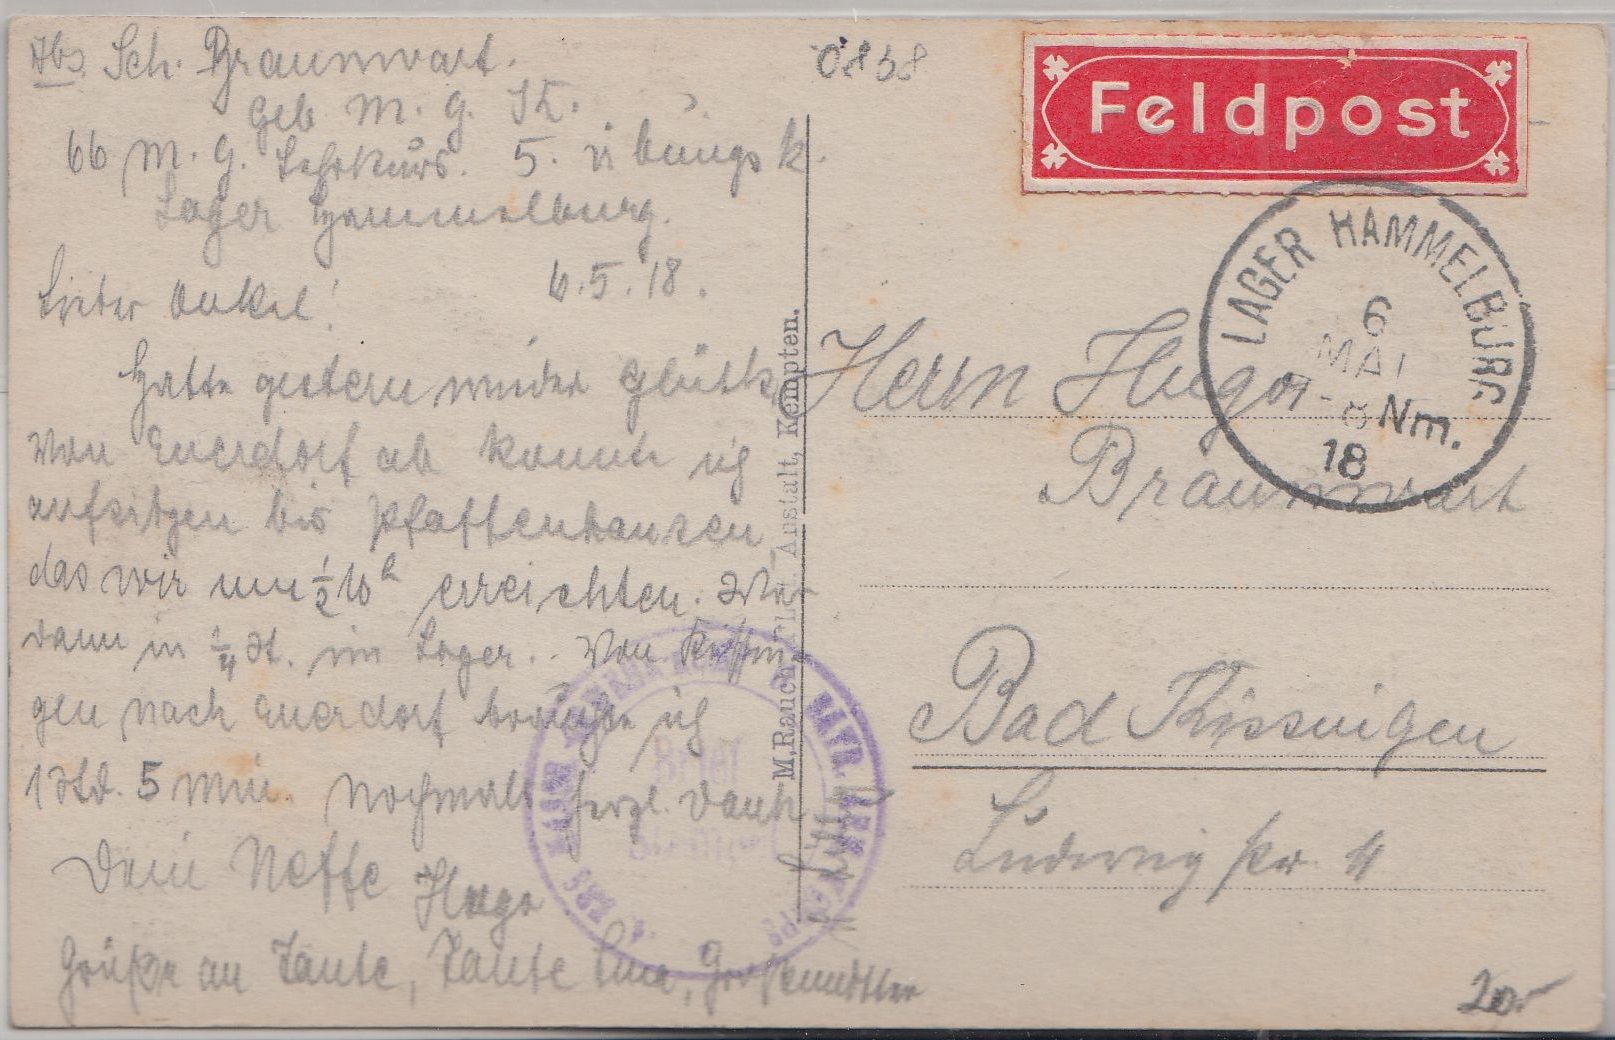 Abs. Sch. Braunwart.
Geb. M. G. K.
66 M. G. Lehrkurs. 5. Übungsk.
Lager Hammelburg.
6.5.18.
Lieber Onkel!
Hatte gestern wieder Glück,
von Euerdorf ab konnte ich
aufsitzen bis Pfaffenhausen,
das wir um ½10h erreichten. War
dann in ¼ St. im Lager. Von Kissin-
gen nach Euerdorf brauchte ich
1 Std. 5 Min. Nochmals herzl. Dank
Dein Neffe
Hugo
Grüße an Tante, Tante Lina, Großmutter
M. Rauch, Anstalt, Kempten.
0858
Feldpost
LAGER HAMMELBURG
6
MAI
7-8 Nm.
18
Herrn Hugo
Braunwart
Bad Kissingen
Ludwigstr. 4
Brief
BAYR.
20.-